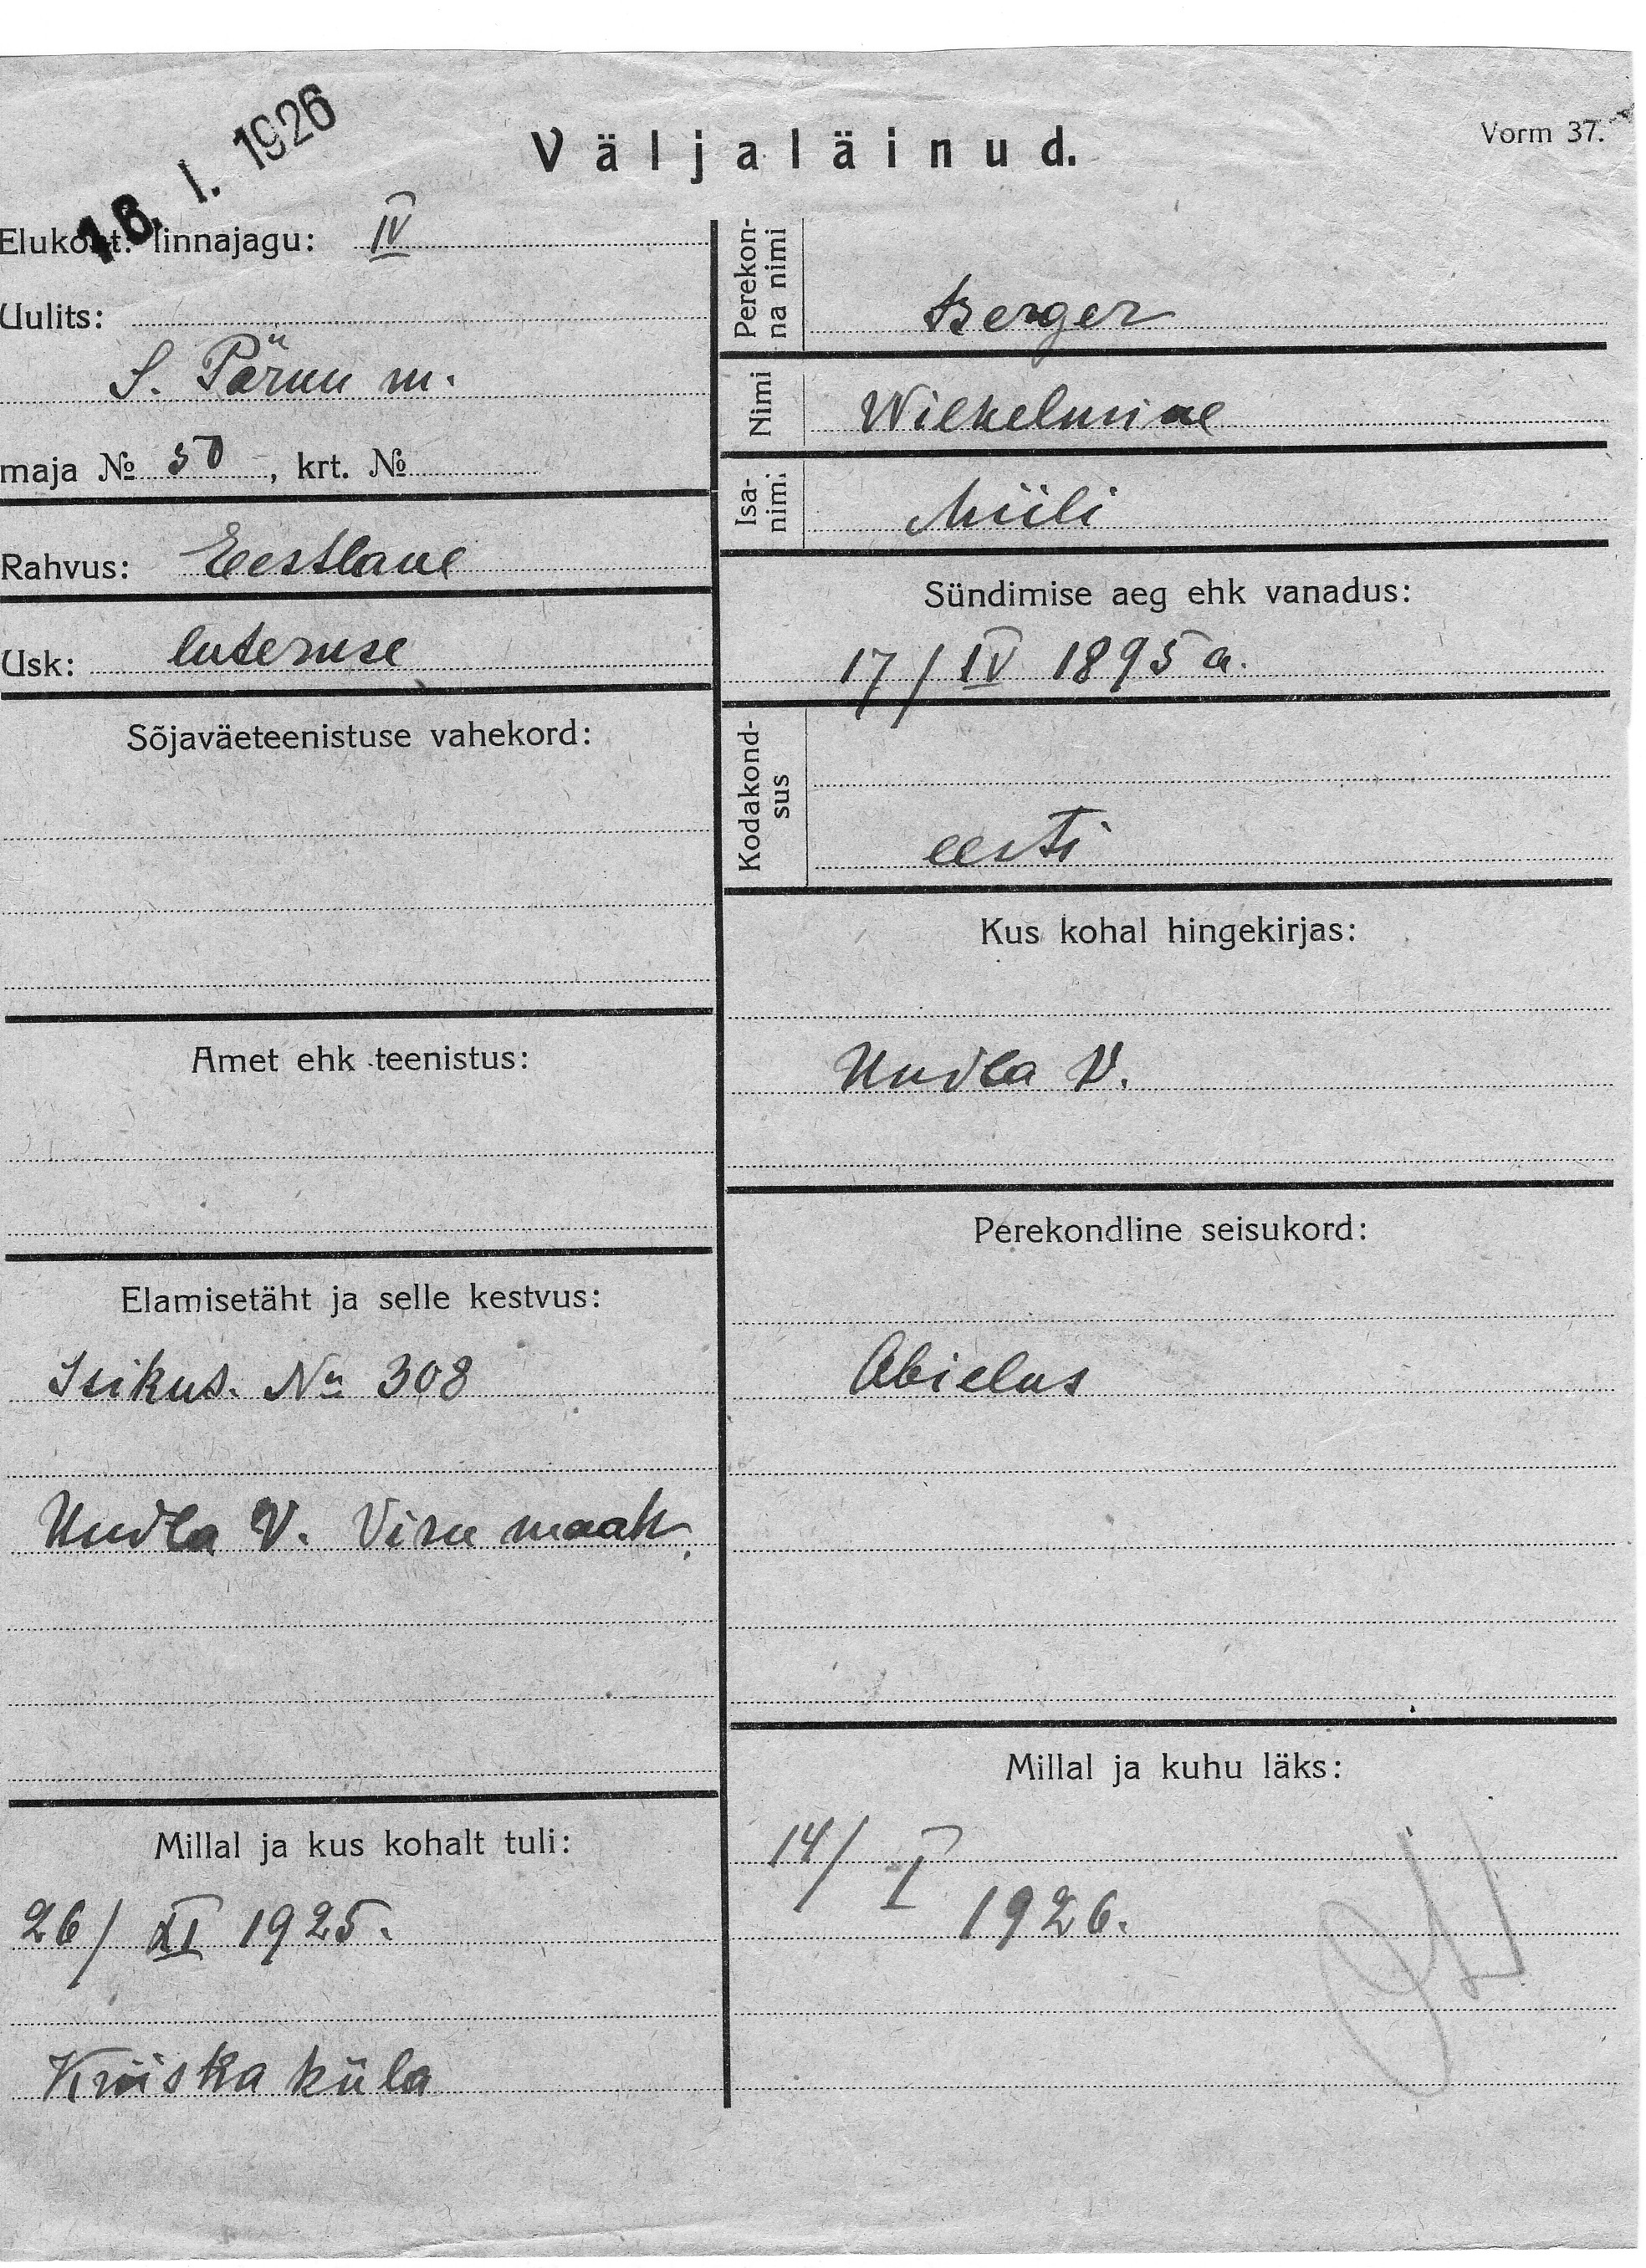 16. I. 1926
Väljaläinud.
Vorm 37.
Elukoht: linnajagu: IV
Uulits:
S. Pärnu m.
maja № 50, krt. №
Rahvus: Eestlane
Usk: luteruse
Sõjaväeteenistuse vahekord:
Amet ehk teenistus:
Elamisetäht ja selle kestvus:
Isikus. No 308
Undla V. Viru maak.
Millal ja kus kohalt tuli:
26/ XI 1925.
küla
Perekon-
na nimi
Berger
Nimi
Wilhelmine
Isa-
nimi.
Miili
Sündimise aeg ehk vanadus:
17/ IV 1895 a.
Kodakond-
sus
eesti
Kus kohal hingekirjas:
Undla V.
Perekondline seisukord:
Abielus
Millal ja kuhu läks:
14/ I
1926.